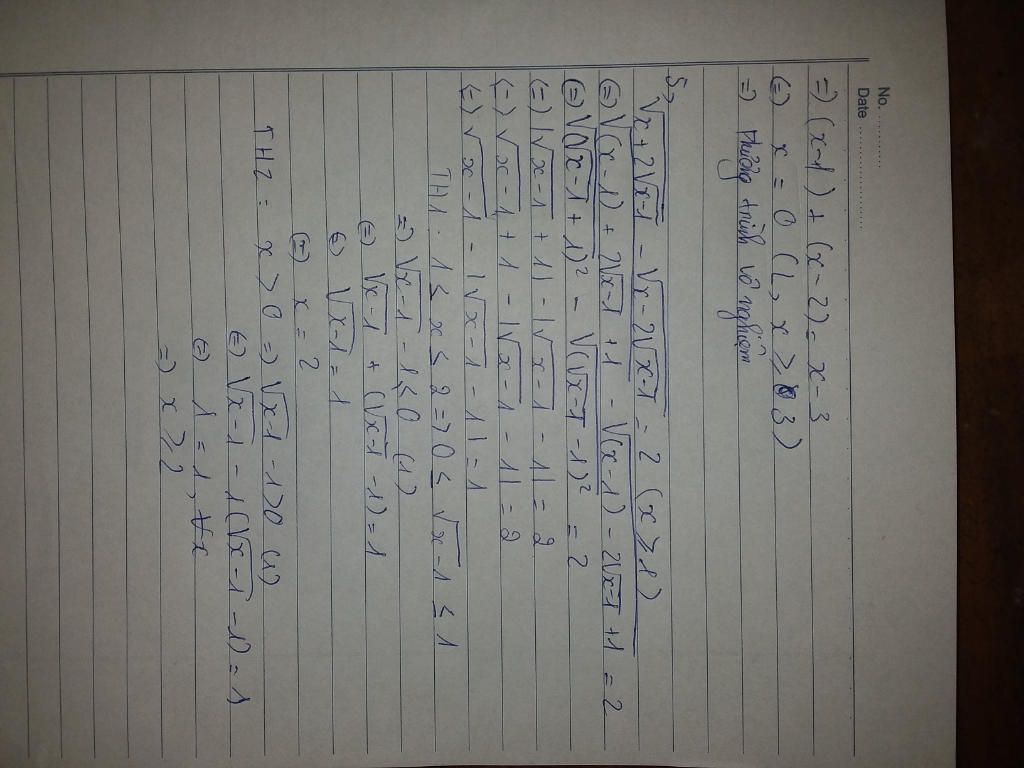 No. ............
Date ....................
=) (x-1) + (x-2) = x-3
(=) x = 0 (L, x ≥ 3)
=) Phương trình vô nghiệm
5, √(x+2√(x-1)) - √(x-2√(x-1)) = 2 (x ≥ 1)
(=) √((x-1) + 2√(x-1) + 1) - √((x-1) - 2√(x-1) + 1) = 2
(=) √((√(x-1) + 1)²) - √((√(x-1) - 1)²) = 2
(=) |√(x-1) + 1| - |√(x-1) - 1| = 2
(=) √(x-1) + 1 - |√(x-1) - 1| = 2
(=) √(x-1) - |√(x-1) - 1| = 1
TH1: 1 ≤ x ≤ 2 =) 0 ≤ √(x-1) ≤ 1
=) √(x-1) - 1 ≤ 0 (1)
(=) √(x-1) + (√(x-1) - 1) = 1
(=) √(x-1) = 1
(=) x = 2
TH2: x > 0 =) √(x-1) - 1 > 0 (1)
(=) √(x-1) - 1(√(x-1) - 1) = 1
(=) 1 = 1, ∀x
=) x ≥ 2